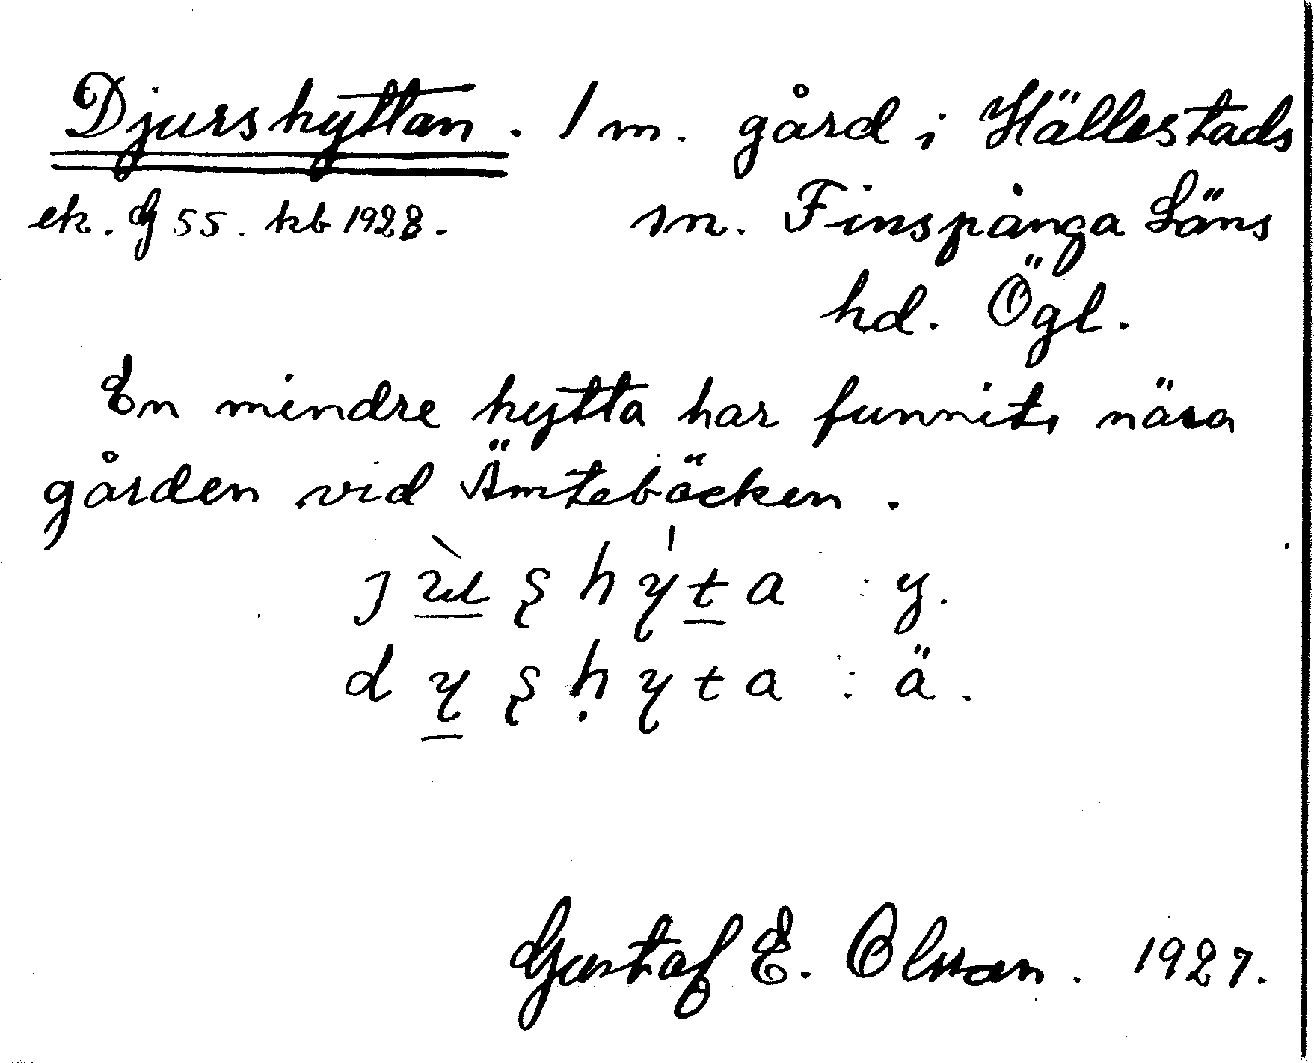 Djurshyttan. 1 m. gård i Hällestads
ek. G 55. kb 1928. sn. Finspånga Läns
hd. Ögl.
En mindre hytta har funnits nära
gården vid Ämtebäcken.
ȷ ùl ş h ý t a : y.
d y ş ḥ y t a : ä.
Gustaf E. Olsson. 1927.